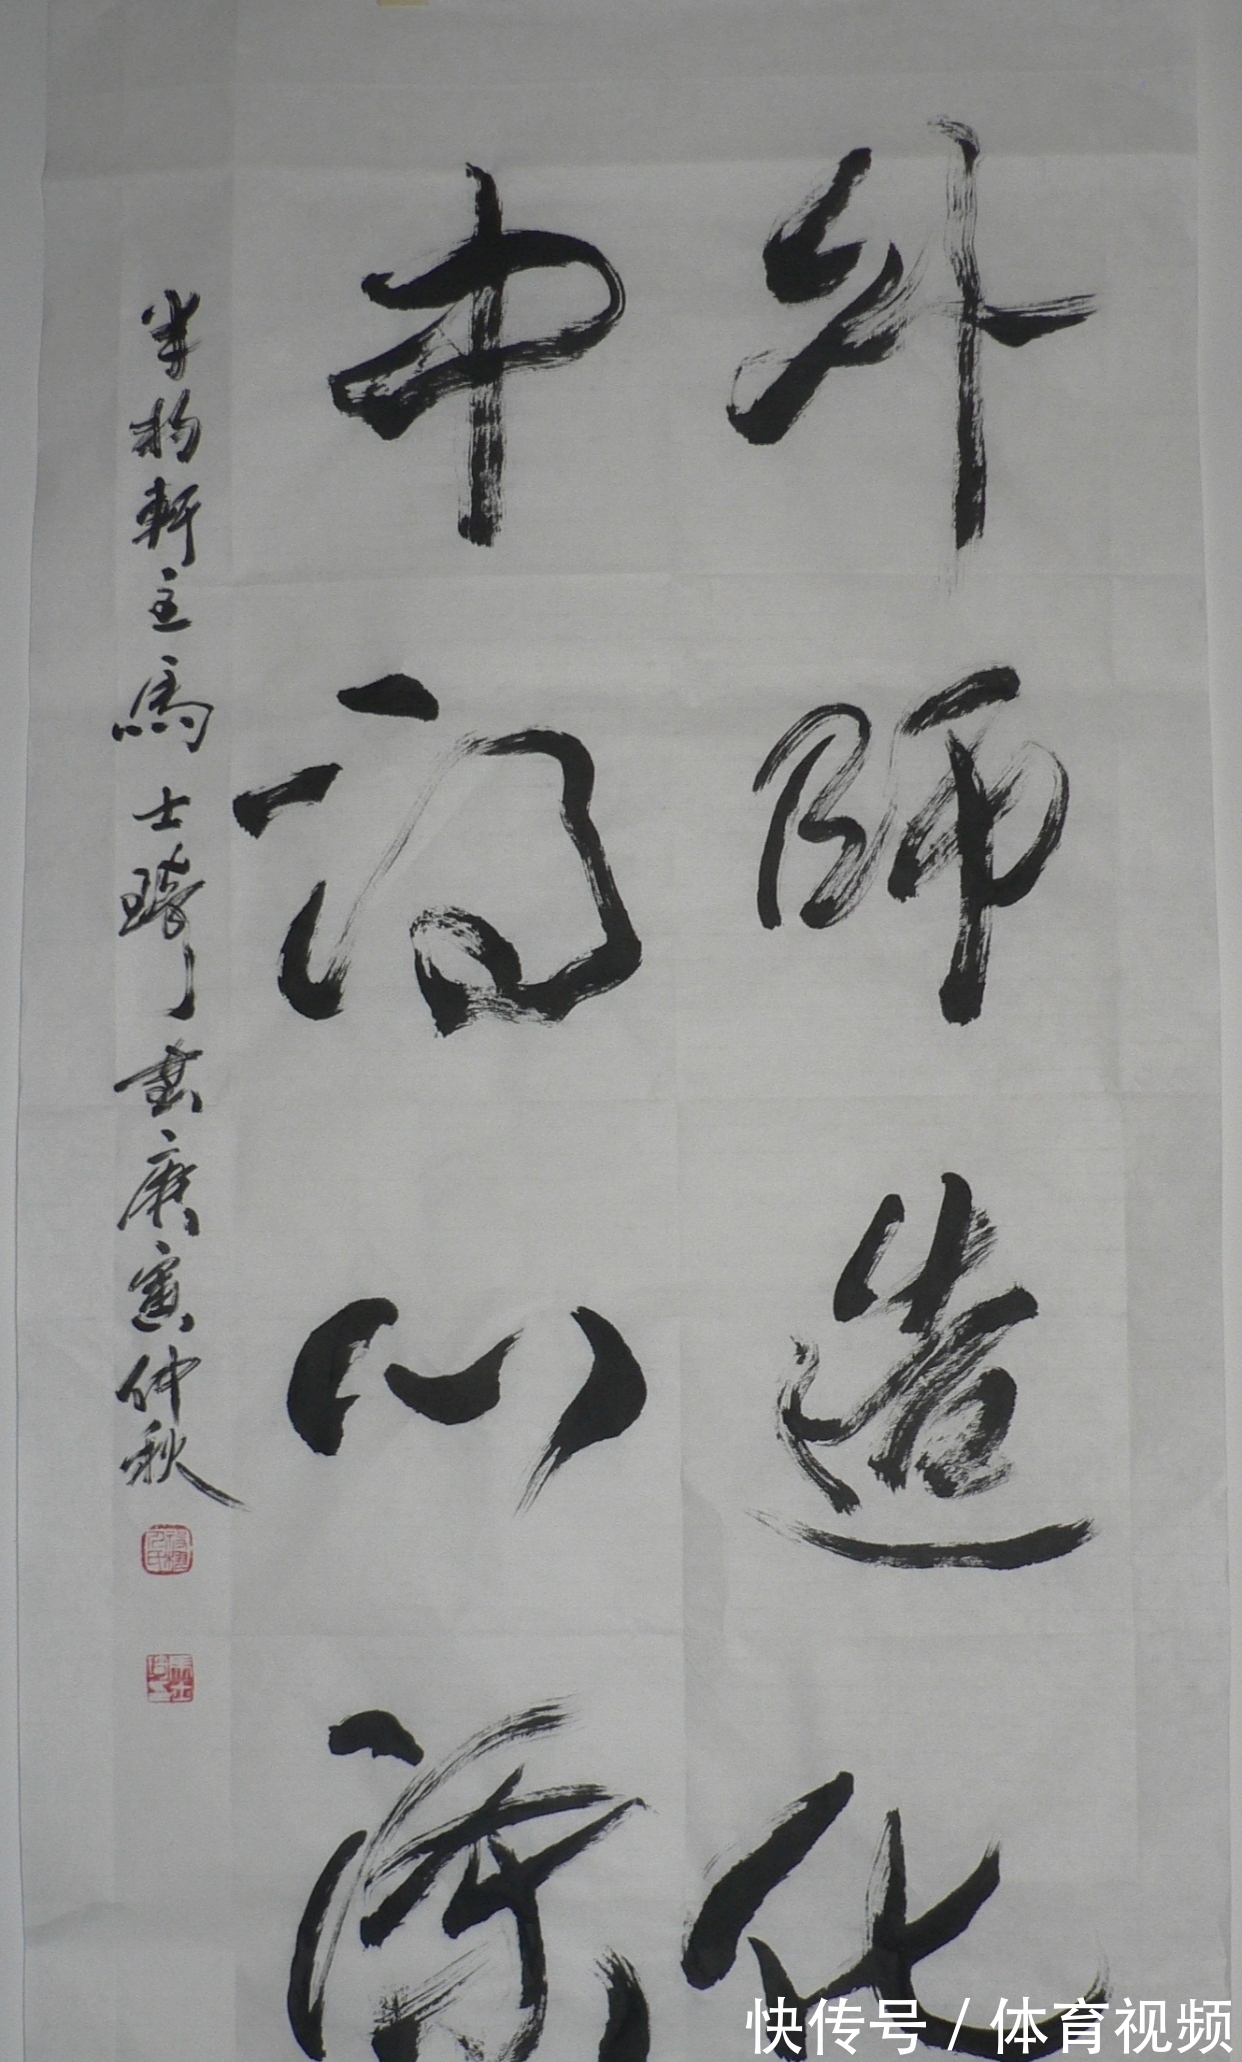 外師造化
中得心源
半杓軒主馬士琦書庚寅仲秋
快传号 / 体育视频